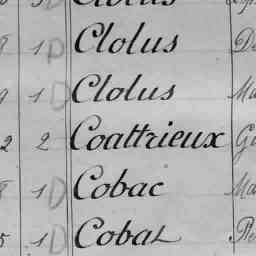 9 1 D Clolus
9 1 D Clolus
2 2 Coattrieux
8 1 D Cobac
5 1 D Cobat